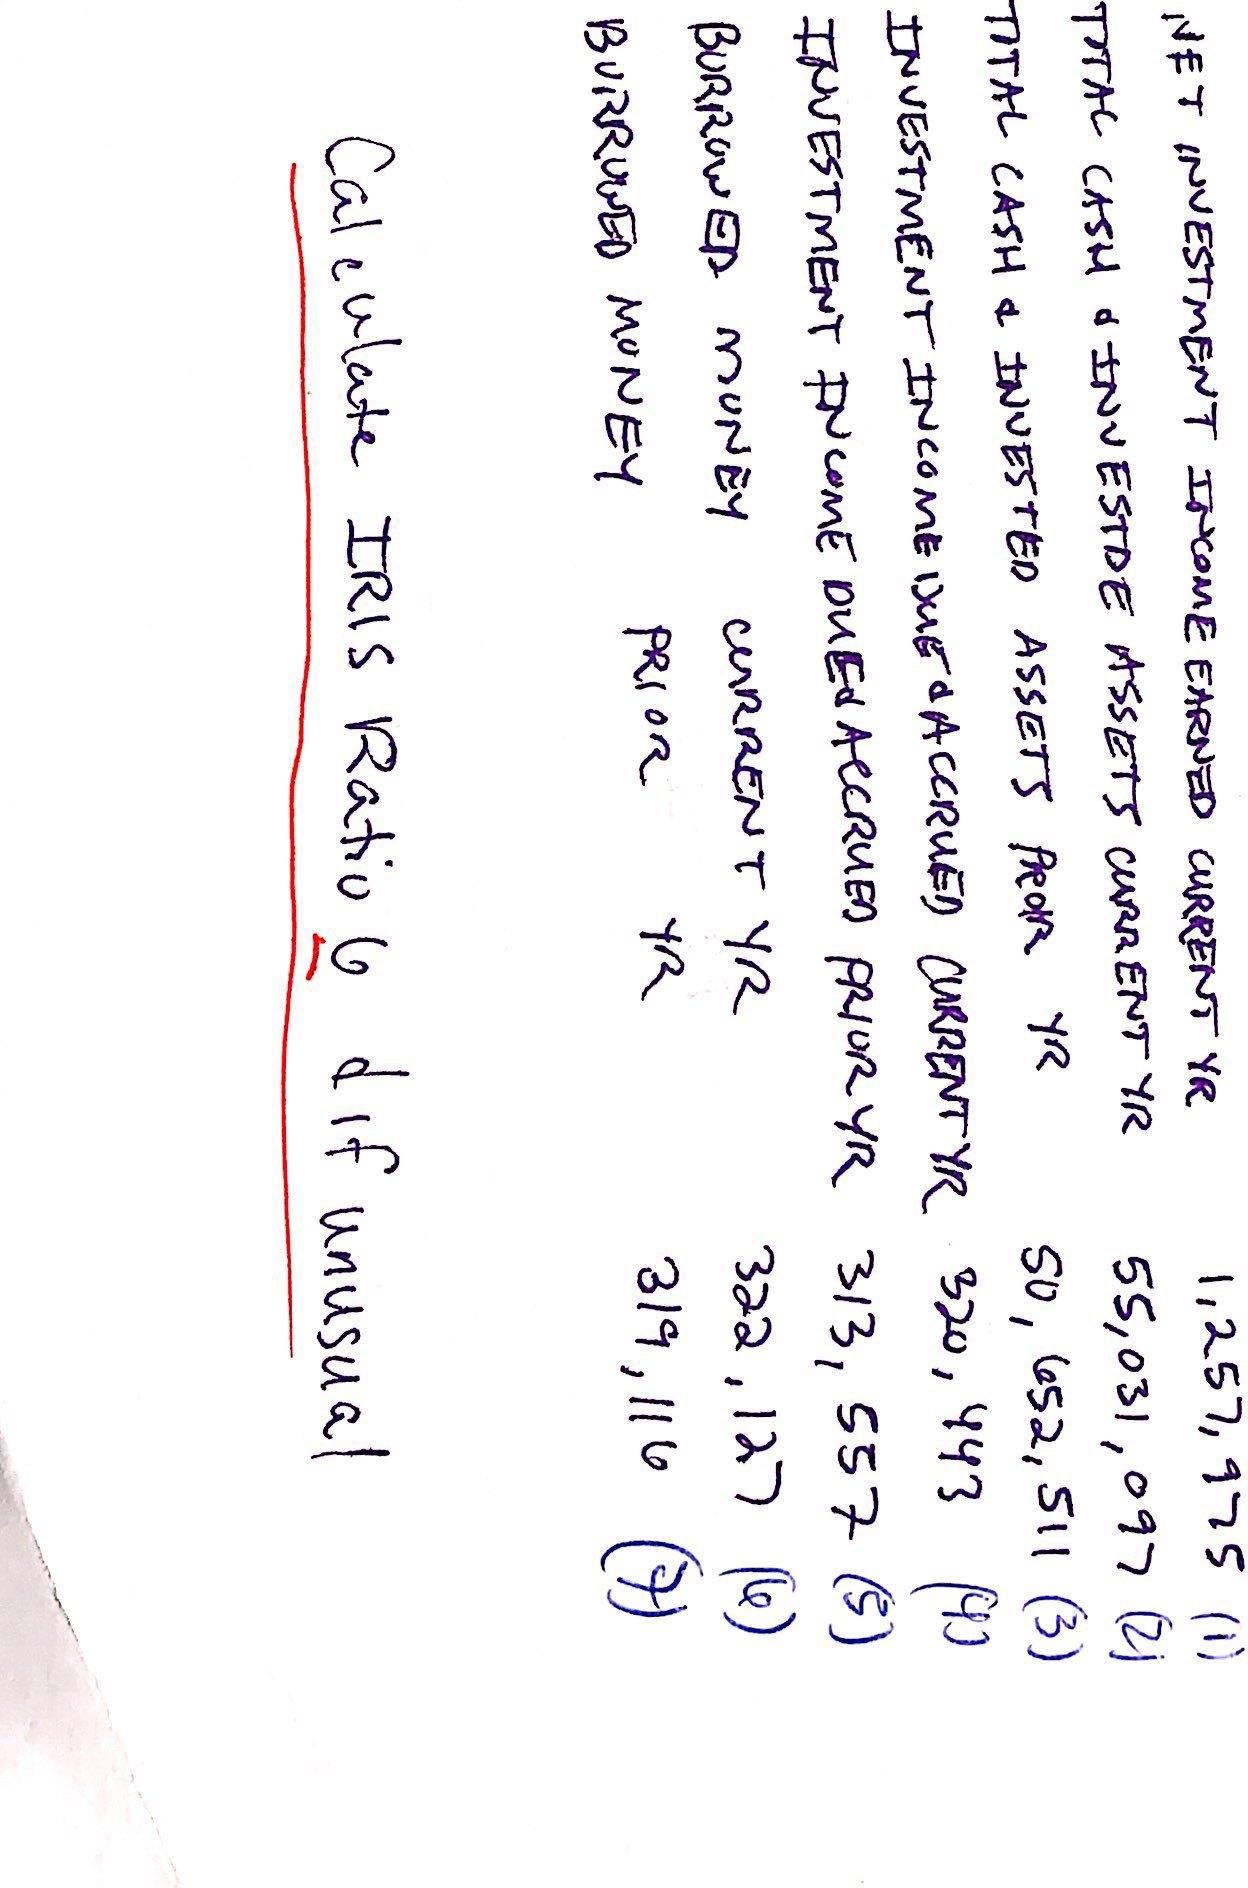 NET INVESTMENT INCOME EARNED CURRENT YR 1,257,975 (1)
TOTAL CASH & INVESTDE ASSETS CURRENT YR 55,031,097 (2)
TOTAL CASH & INVESTED ASSETS PROIR YR 50,652,511 (3)
INVESTMENT INCOME DUE & ACCRUED CURRENT YR 320,443 (4)
INVESTMENT INCOME DUE & ACCRUED PRIOR YR 313,557 (5)
BORROWED MONEY CURRENT YR 322,127 (6)
BORROWED MONEY PRIOR YR 319,116 (7)
Calculate IRIS Ratio 6 & if unusual